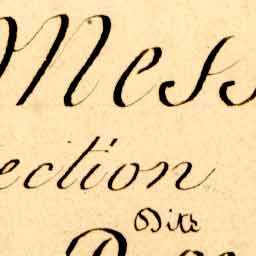 Mess
ection
Dite